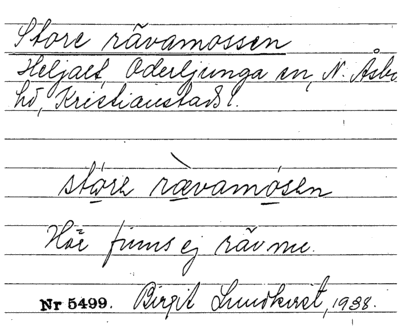 Store rävamossen
Heljalt, Oderljunga sn, N. Åsbo
hd, Kristianstads l.
støre rævamosen
Här finns ej räv nu.
Nr 5499. Birgit Lundkvist, 1938.